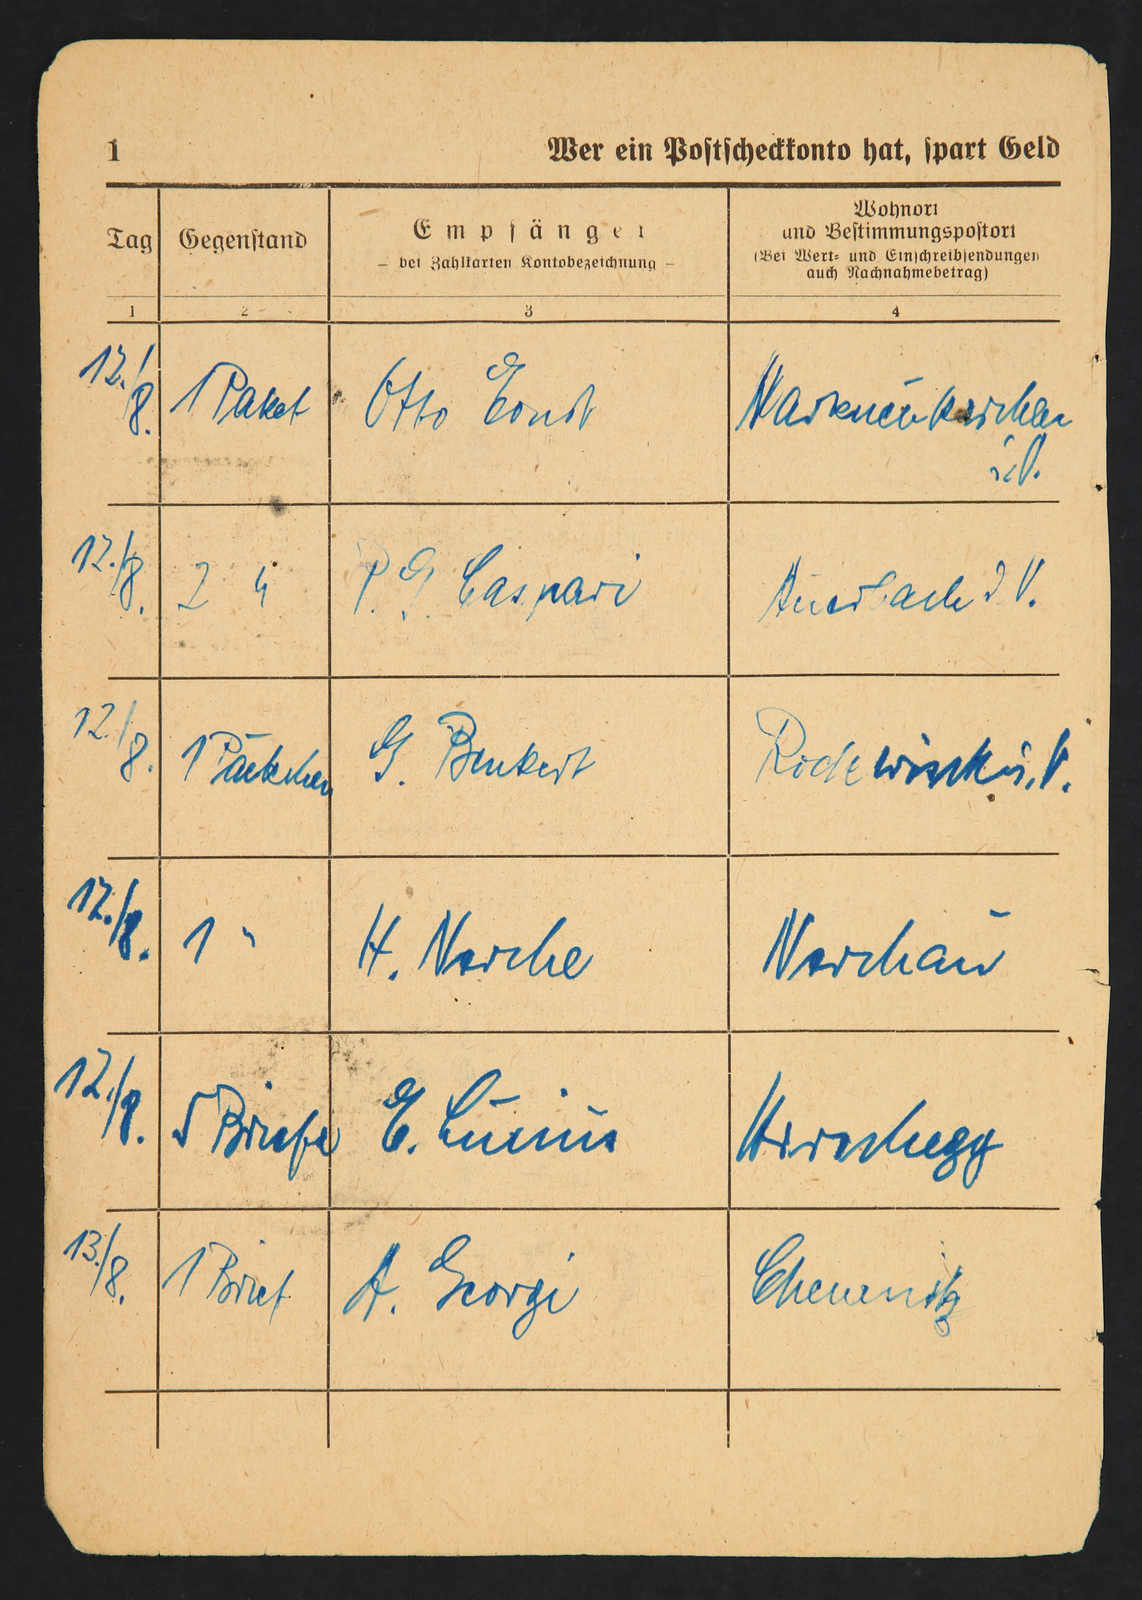 1 Wer ein Postscheckkonto hat, spart Geld
Tag Gegenstand Empfänger Wohnort
und Bestimmungspostort
– bei Zahlkarten Kontobezeichnung – (Bei Wert- und Einschreibsendungen
auch Nachnahmebetrag)
1 2 3 4
12./8. 1 Paket Otto Ernst Markneukirchen
i.V.
12./8. 2 " P. G. Caspari Auerbach i V.
12./8. 1 Päckchen G. Benkert Rodewisch i. V.
12./8. 1 " H. Nerche Nerchau
12./8. 5 Briefe E.
13./8. 1 Brief A. Georgi Chemnitz